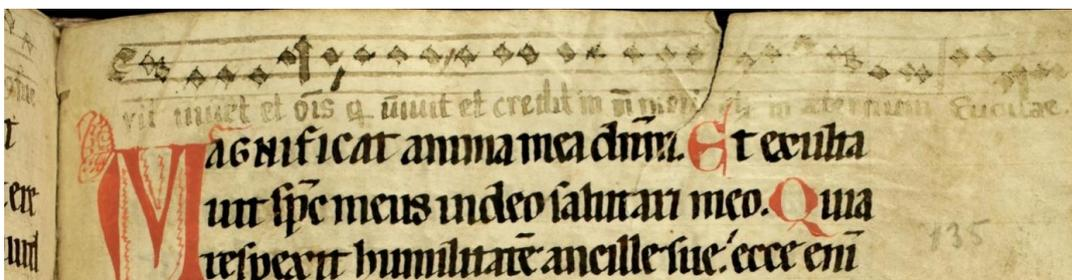 vit uiuet et oīs q̄ uiuit et credit in in eternum Euouae.
Magnificat anima mea dn̄m. Et exulta
uit sp̄c meus in deo salutari meo. Quia
respexit humilitatē ancille sue: ecce eni̅
135